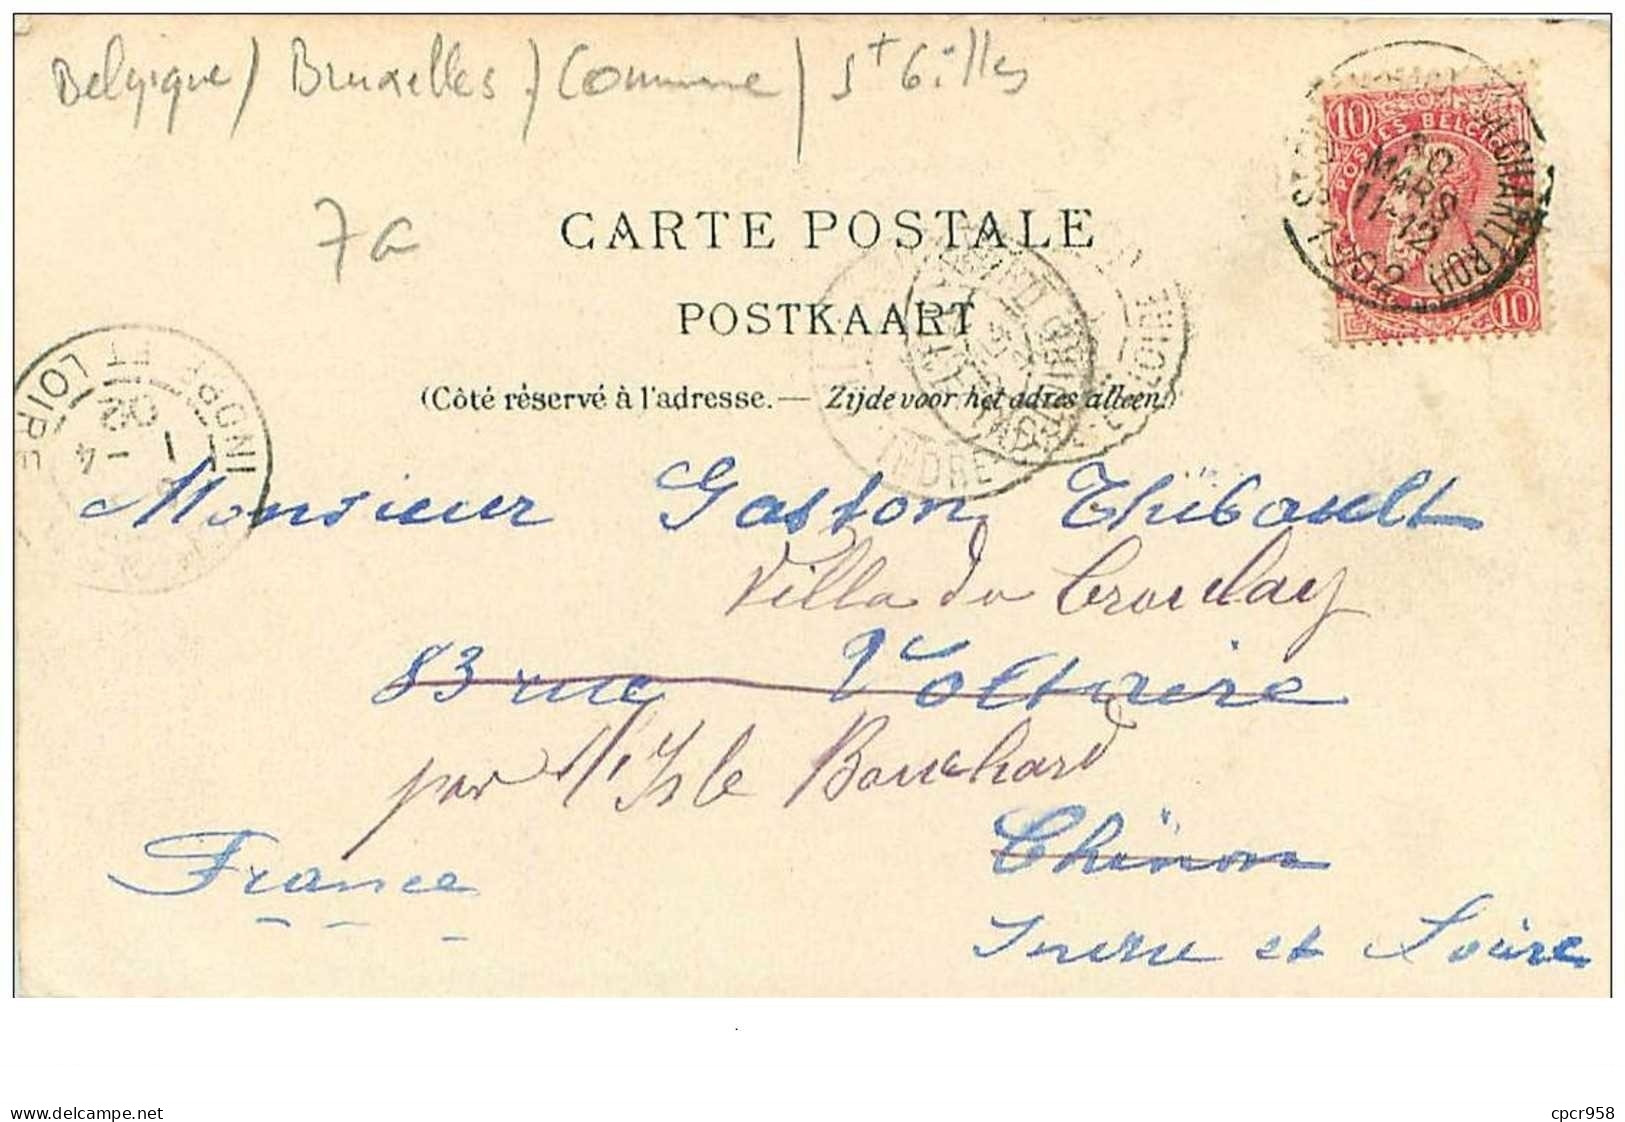 Belgique / Bruxelles / Commune / St Gilles
7a
CARTE POSTALE
POSTKAART
(Côté réservé à l'adresse. — Zijde voor het adres alleen.)
10 10
POSTES BELG
MARS
11-12
CHARLEROI
10
INDRE ET LOIRE
1 - 4
02
INDRE
LOIRE
Monsieur Gaston Thibault
Villa du
83 rue Voltaire
par l'Isle Bouchard
Chinon
France
Indre et Loire
delcampe.net
cpcr958